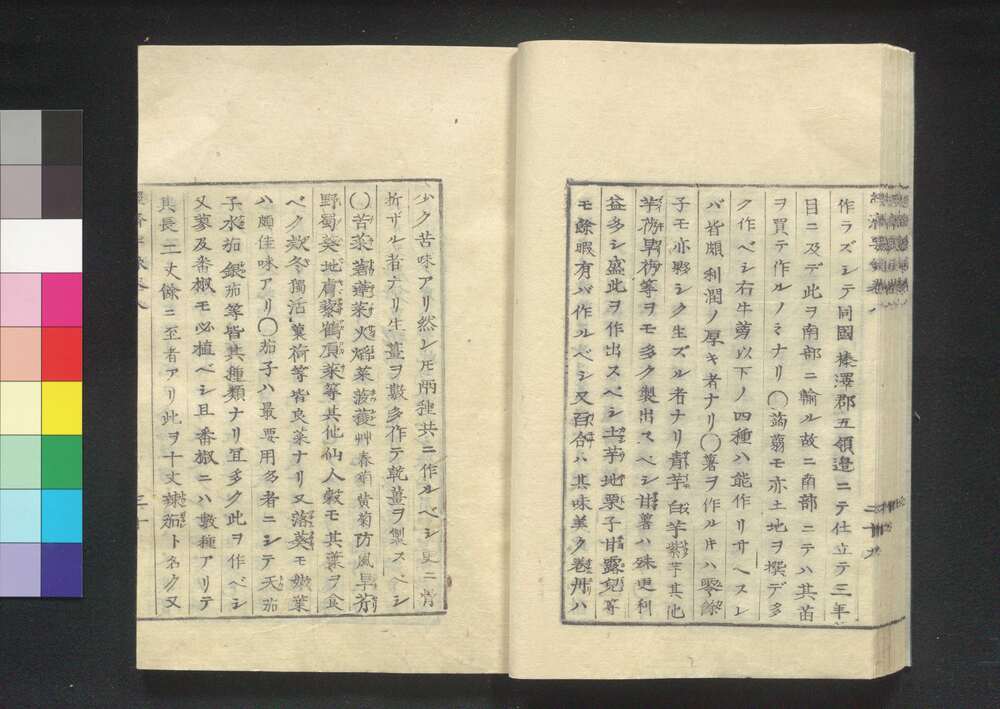 作ラズシテ同國榛澤郡五領邉ニテ仕立テ三年
目ニ及デ此ヲ南部ニ輸ル故ニ南部ニテハ其苗
ヲ買テ作ルノミナリ〇蒟蒻モ亦土地ヲ撰デ多
ク作ベシ右牛蒡以下ノ四種ハ能作リサヘスレ
バ皆頗利潤ノ厚キ者ナリ〇薯ヲ作ルキハ零餘
子モ亦夥シク生ズル者ナリ青芋白芋紫芋其他
等ヲモ多ク製出スベシ甘薯ハ殊更利
益多シ盛此ヲ作出スベシ土芋地栗子甘露兒等
モ餘暇有バ作ルベシ又百合ハ其味美ク卷丹ハ
少ク苦味アリ然シ𪜈兩種共ニ作ルベシ夏ニ
折ザル者ナリ生薑ヲ數多作テ乾薑ヲ製スベシ
〇苦菜莙薘菜火焔菜菠薐艸春菊黄菊防風旱芹
野蜀葵地膚藜鶴頂菜等其他仙人穀モ其葉ヲ食
ベク欵冬獨活蘘荷等皆良菜ナリ又落葵モ嫩葉
ハ頗佳味アリ〇茄子ハ最要用多者ニシテ天茄
子水茄銀茄等皆其種類ナリ宜多ク此ヲ作ベシ
又蓼及番椒モ必植ベシ且番椒ニハ數種アリテ
其長一丈餘ニ至者アリ此ヲ十丈辣茄ト名ク又